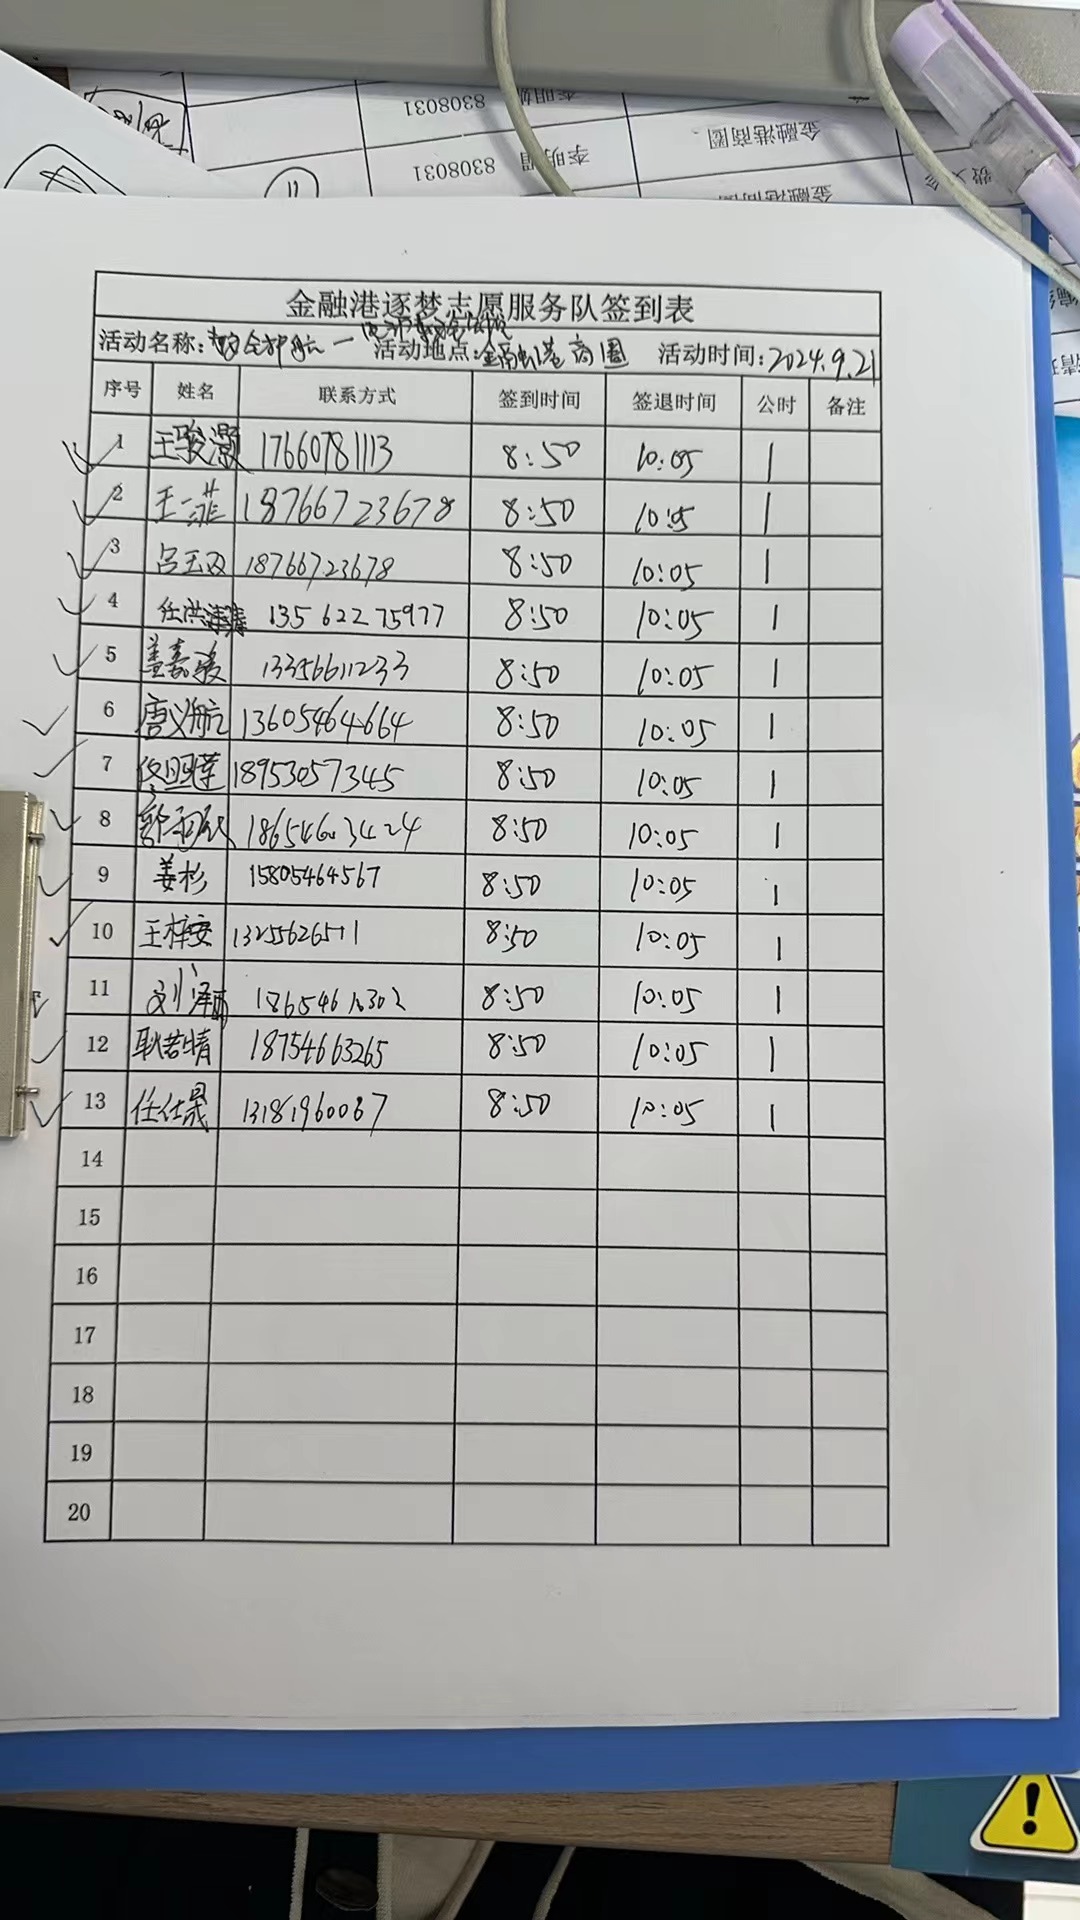 8308031
金融港商圈
李明
8308031
金融港逐梦志愿服务队签到表
活动名称: 活动地点:金融港商圈 活动时间:2024.9.21
序号 姓名 联系方式 签到时间 签退时间 公时 备注
1 王骏灏 17660781113 8:50 10:05 1
2 王一菲 18766723678 8:50 10:05 1
3 18766723678 8:50 10:05 1
4 任洪 13562275977 8:50 10:05 1
5 盖嘉 13356611233 8:50 10:05 1
6 唐义航 13605464664 8:50 10:05 1
7 佟照莲 18953057345 8:50 10:05 1
8 8:50 10:05 1
9 姜杉 15805464567 8:50 10:05 1
10 王梓安 8:50 10:05 1
11 刘泽雨 8:50 10:05 1
12 耿若晴 18754663265 8:50 10:05 1
13 任仕晟 8:50 10:05 1
14
15
16
17
18
19
20